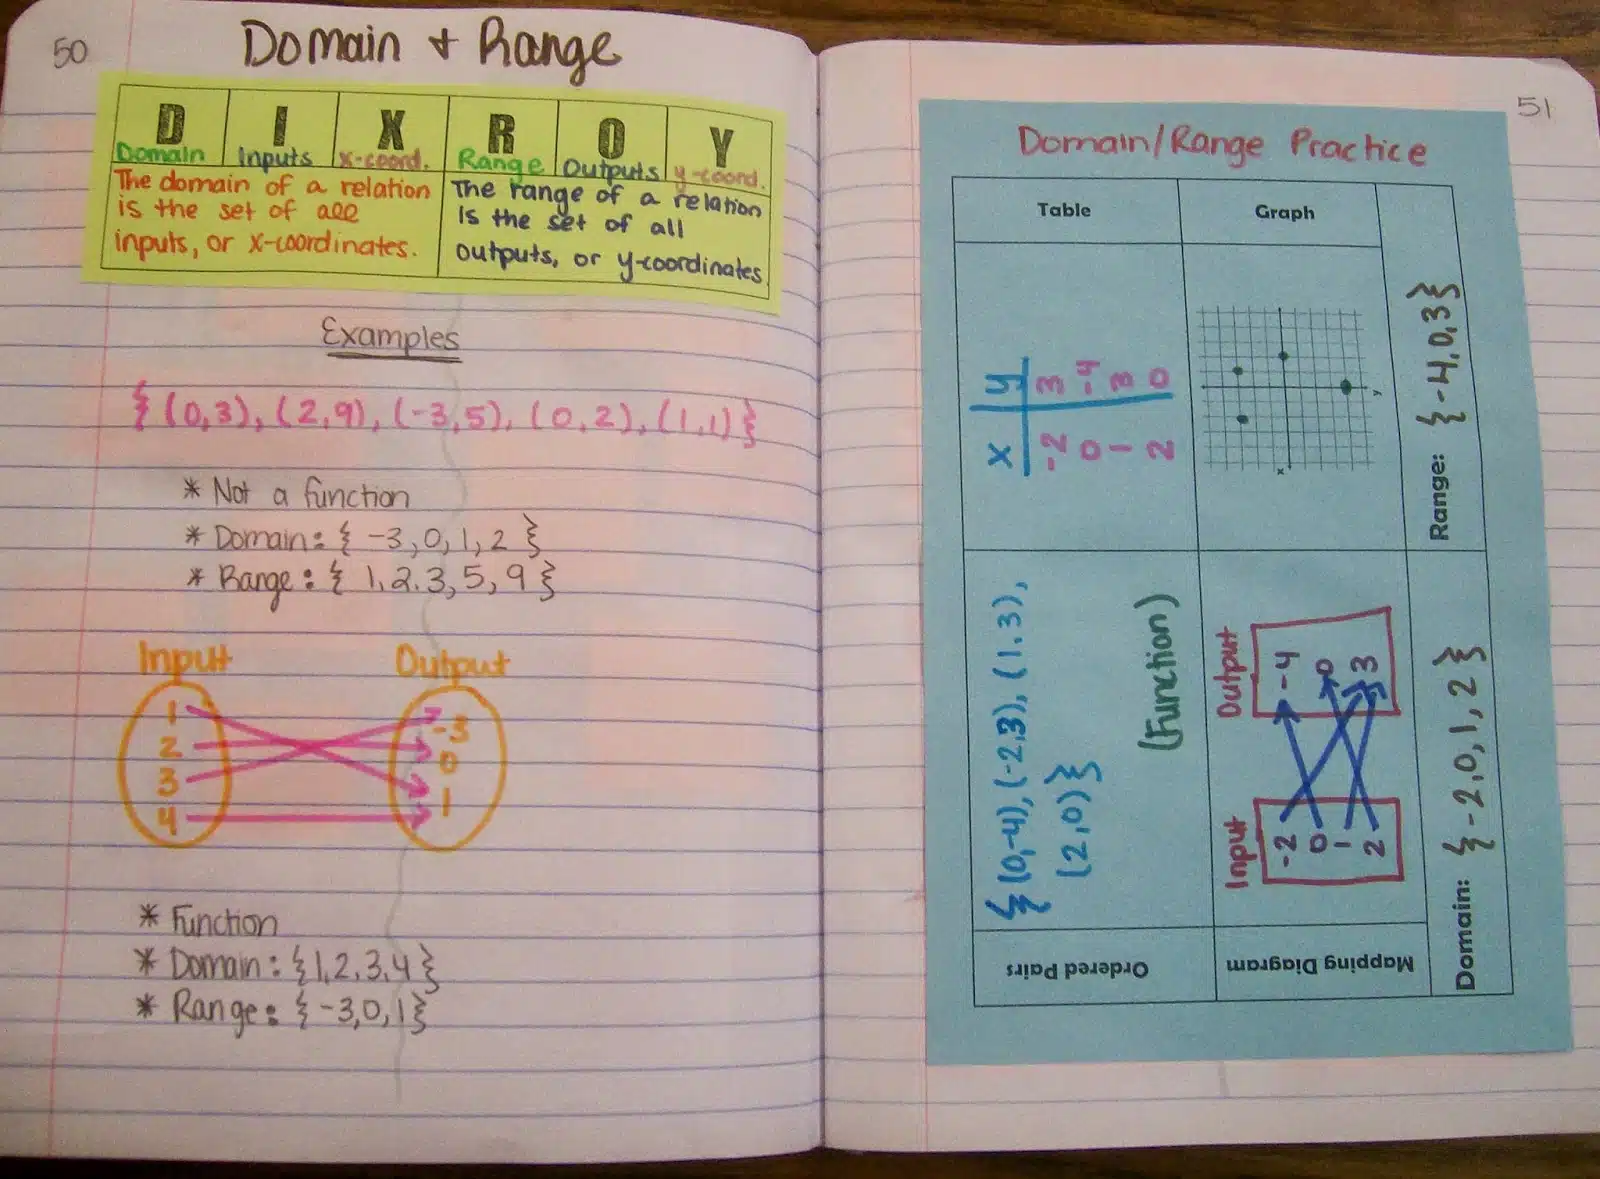 50
Domain + Range
D I X R O Y
Domain Inputs x-coord. Range Outputs y-coord.
The domain of a relation
is the set of all
inputs, or x-coordinates.
The range of a relation
is the set of all
outputs, or y-coordinates
Examples
{ (0,3), (2,9), (-3,5), (0,2), (1,1) }
* Not a function
* Domain: { -3, 0, 1, 2 }
* Range: { 1, 2, 3, 5, 9 }
Input Output
1 -3
2 0
3 1
4
* Function
* Domain: {1, 2, 3, 4}
* Range: {-3, 0, 1}
51
Domain/Range Practice
Ordered Pairs
{(0,-4), (-2,3), (1,3),
(2,0)}
(Function)
Table
x y
-2 3
0 -4
1 3
2 0
Mapping Diagram
Input Output
-2 -4
0 0
1 3
2
Graph
x
y
Domain: {-2, 0, 1, 2}
Range: {-4, 0, 3}